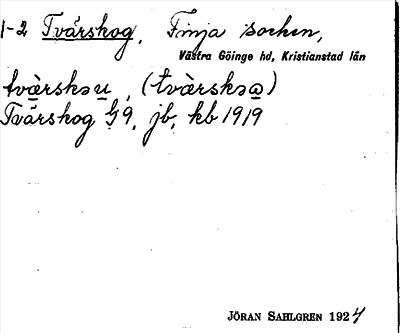 1-2 Tvärskog, Finja socken,
Västra Göinge hd, Kristianstad län
tvæ̀rskəu̲, (tvæ̀rskəa̲)
Tvärskog G 9, jb, kb 1919
JÖRAN SAHLGREN 1924